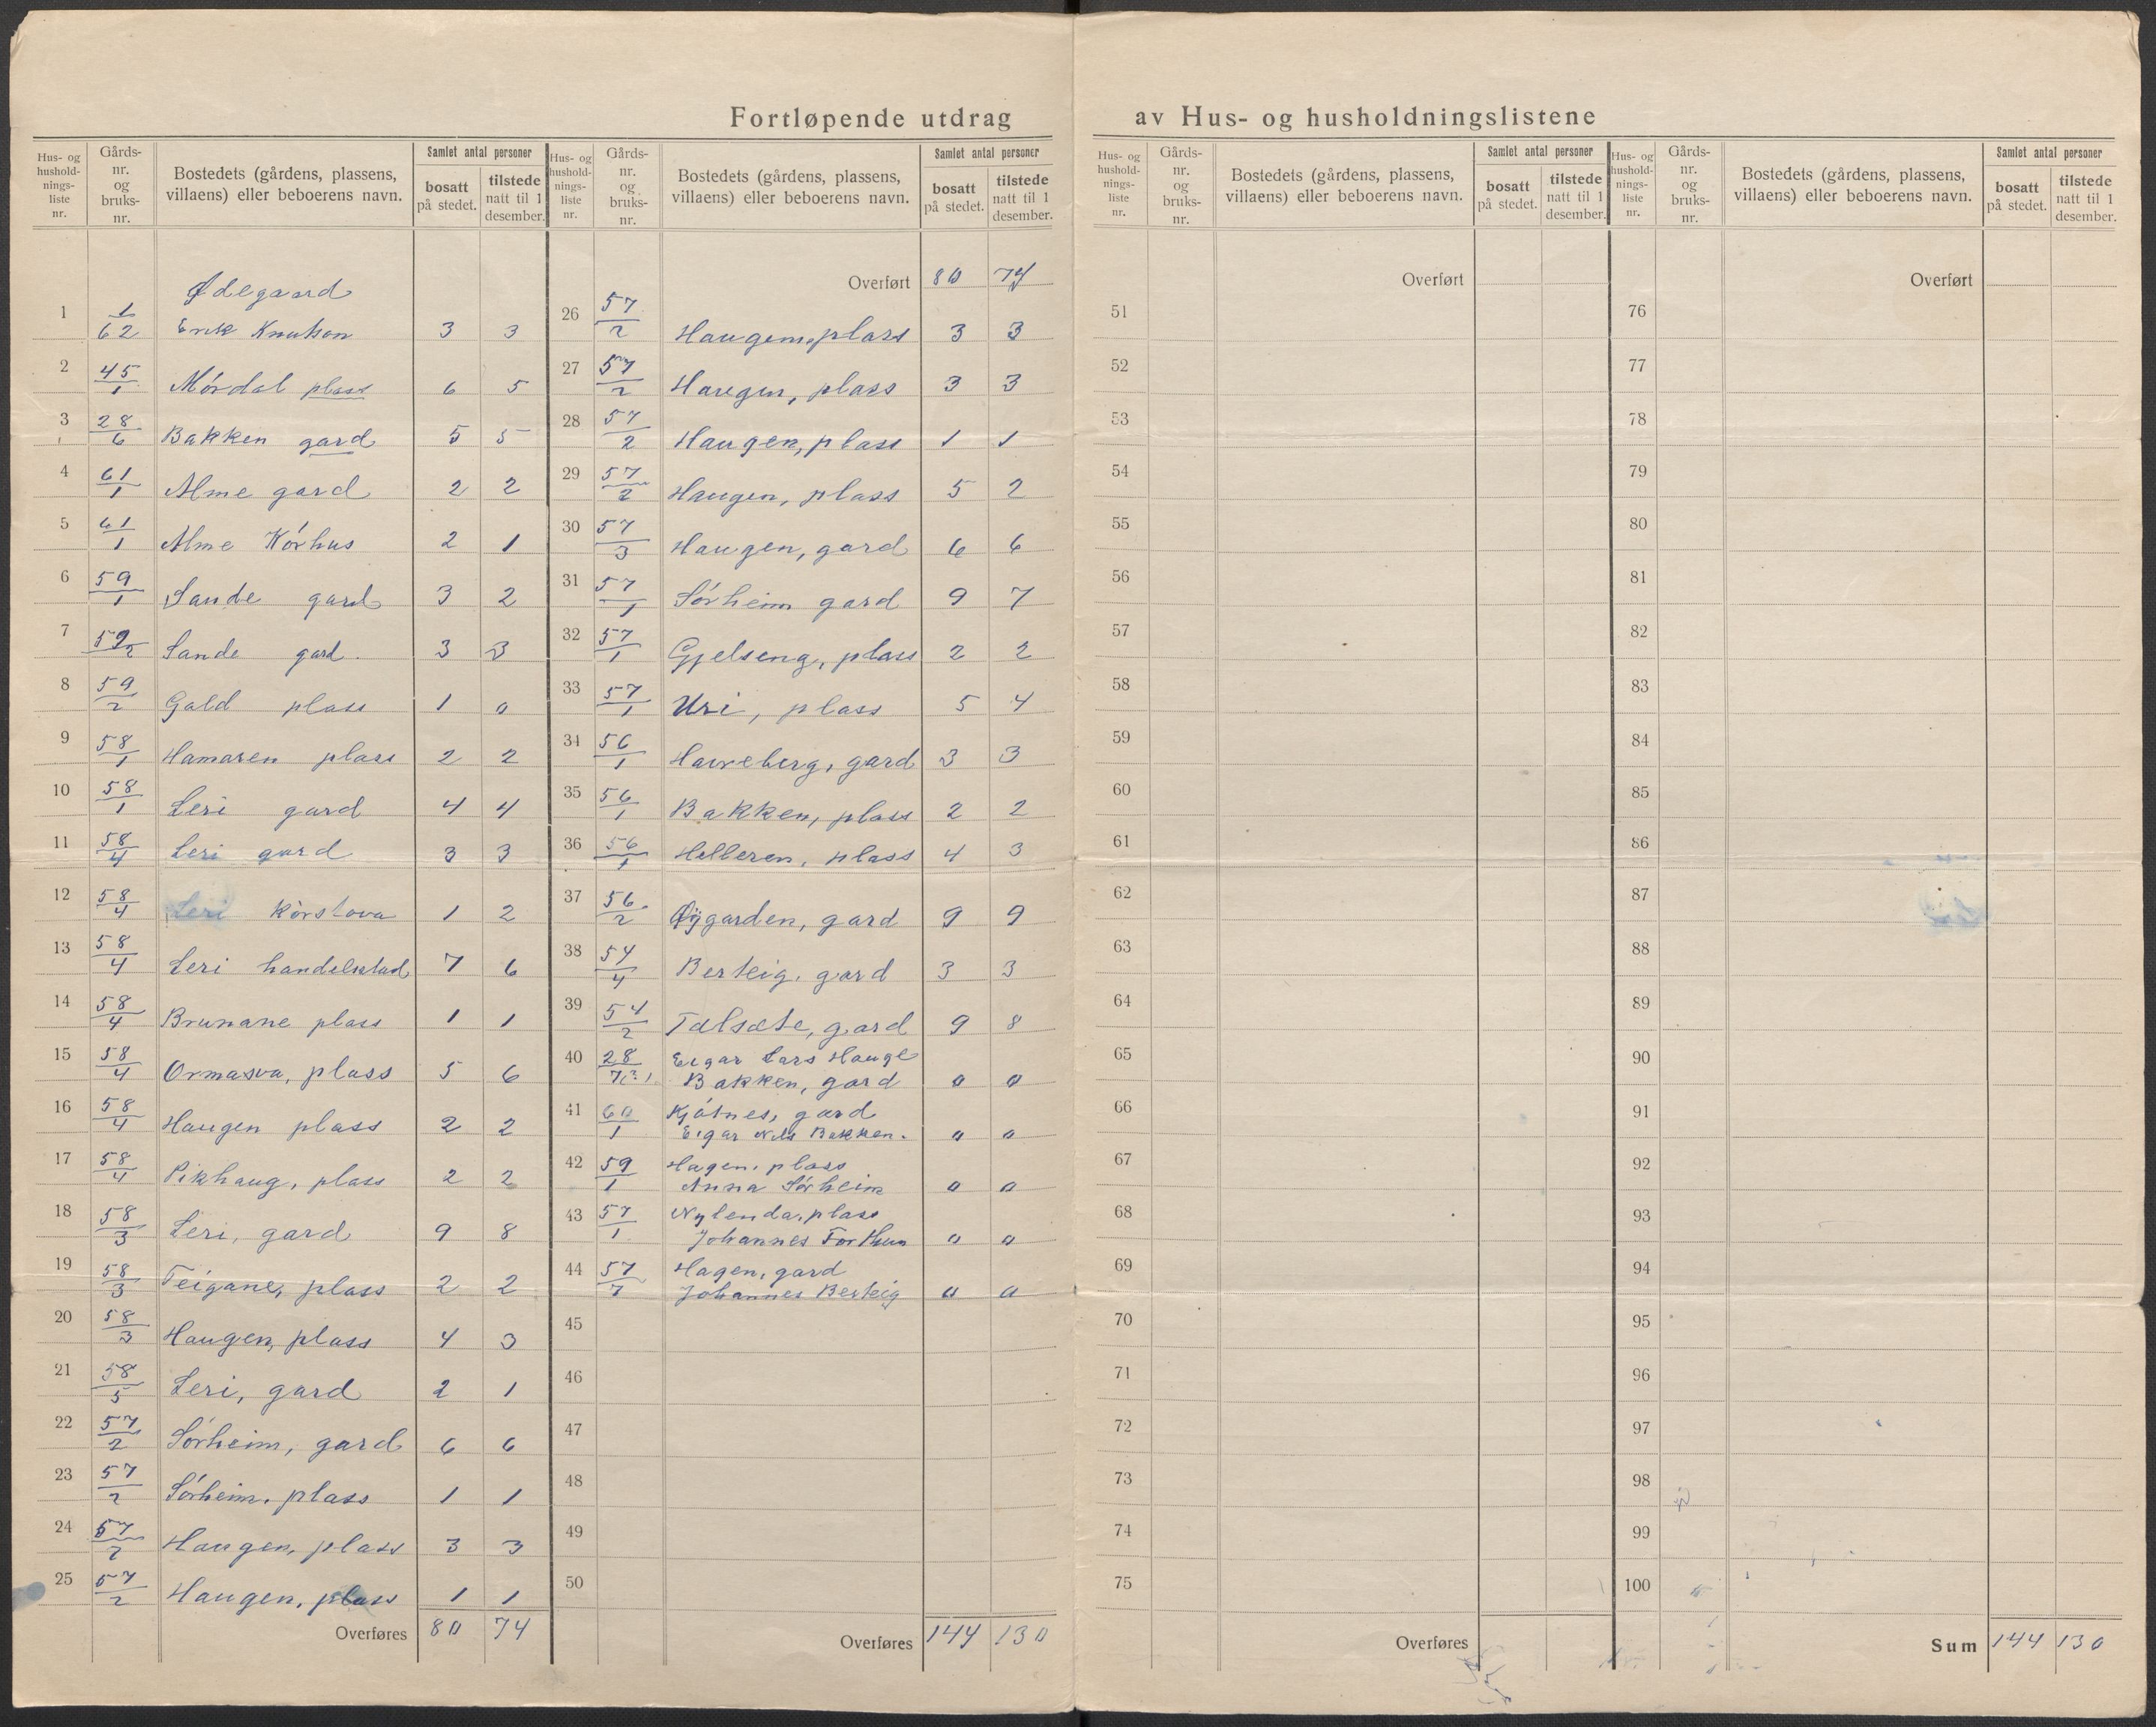 Fortløpende utdrag av Hus- og husholdningslistene
Hus- og husholdnings-liste nr. | Gårds-nr. og bruks-nr. | Bostedets (gårdens, plassens, villaens) eller beboerens navn. | Samlet antal personer | bosatt på stedet. | tilstede natt til 1 desember.
Ødegaard
1 1/62 Erik Knutson 3 3
2 45/1 Mórdal plass 6 5
3 28/6 Bakken gard 5 5
4 61/1 Alme gard 2 2
5 61/1 Alme Kórhus 2 1
6 59/1 Sande gard 3 2
7 59/2 Sande gard 3 3
8 59/2 Gald plass 1 0
9 58/1 Hamaren plass 2 2
10 58/1 Leri gard 4 4
11 58/4 Leri gard 3 3
12 58/4 Leri Kórstova 1 2
13 58/4 Leri handelstad 7 6
14 58/4 Brunane plass 1 1
15 58/4 Ormasva, plass 5 6
16 58/4 Haugen plass 2 2
17 58/4 Pikhaug, plass 2 2
18 58/3 Leri, gard 9 8
19 58/3 Teigane, plass 2 2
20 58/3 Haugen, plass 4 3
21 58/5 Leri, gard 2 1
22 57/2 Sórheim, gard 6 6
23 57/2 Sórheim, plass 1 1
24 57/2 Haugen, plass 3 3
25 57/2 Haugen, plass 1 1
Overføres 80 74
Hus- og husholdnings-liste nr. | Gårds-nr. og bruks-nr. | Bostedets (gårdens, plassens, villaens) eller beboerens navn. | Samlet antal personer | bosatt på stedet. | tilstede natt til 1 desember.
Overført 80 74
26 57/2 Haugen, plass 3 3
27 57/2 Haugen, plass 3 3
28 57/2 Haugen, plass 1 1
29 57/2 Haugen, plass 5 2
30 57/3 Haugen, gard 6 6
31 57/1 Sórheim gard 9 7
32 57/1 Gjelseng, plass 2 2
33 57/1 Uri, plass 5 4
34 56/1 Haureberg, gard 3 3
35 56/1 Bakken, plass 2 2
36 56/1 Helleren, plass 4 3
37 56/2 Øygarden, gard 9 9
38 54/4 Berteig, gard 3 3
39 54/2 Talsete, gard 9 8
40 28/7(?) Eigar Lars Hauge
Bakken, gard 0 0
41 60/1 Kjótnes, gard
Eigar Nils Bakken. 0 0
42 59/1 Hagen, plass
Anna Sórheim 0 0
43 57/1 Nylenda, plass
Johannes Forthun 0 0
44 57/7 Hagen, gard
Johannes Berteig 0 0
45
46
47
48
49
50
Overføres 144 130
Hus- og husholdnings-liste nr. | Gårds-nr. og bruks-nr. | Bostedets (gårdens, plassens, villaens) eller beboerens navn. | Samlet antal personer | bosatt på stedet. | tilstede natt til 1 desember.
Overført
51
52
53
54
55
56
57
58
59
60
61
62
63
64
65
66
67
68
69
70
71
72
73
74
75
Overføres
Hus- og husholdnings-liste nr. | Gårds-nr. og bruks-nr. | Bostedets (gårdens, plassens, villaens) eller beboerens navn. | Samlet antal personer | bosatt på stedet. | tilstede natt til 1 desember.
Overført
76
77
78
79
80
81
82
83
84
85
86
87
88
89
90
91
92
93
94
95
96
97
98
99
100
Sum 144 130